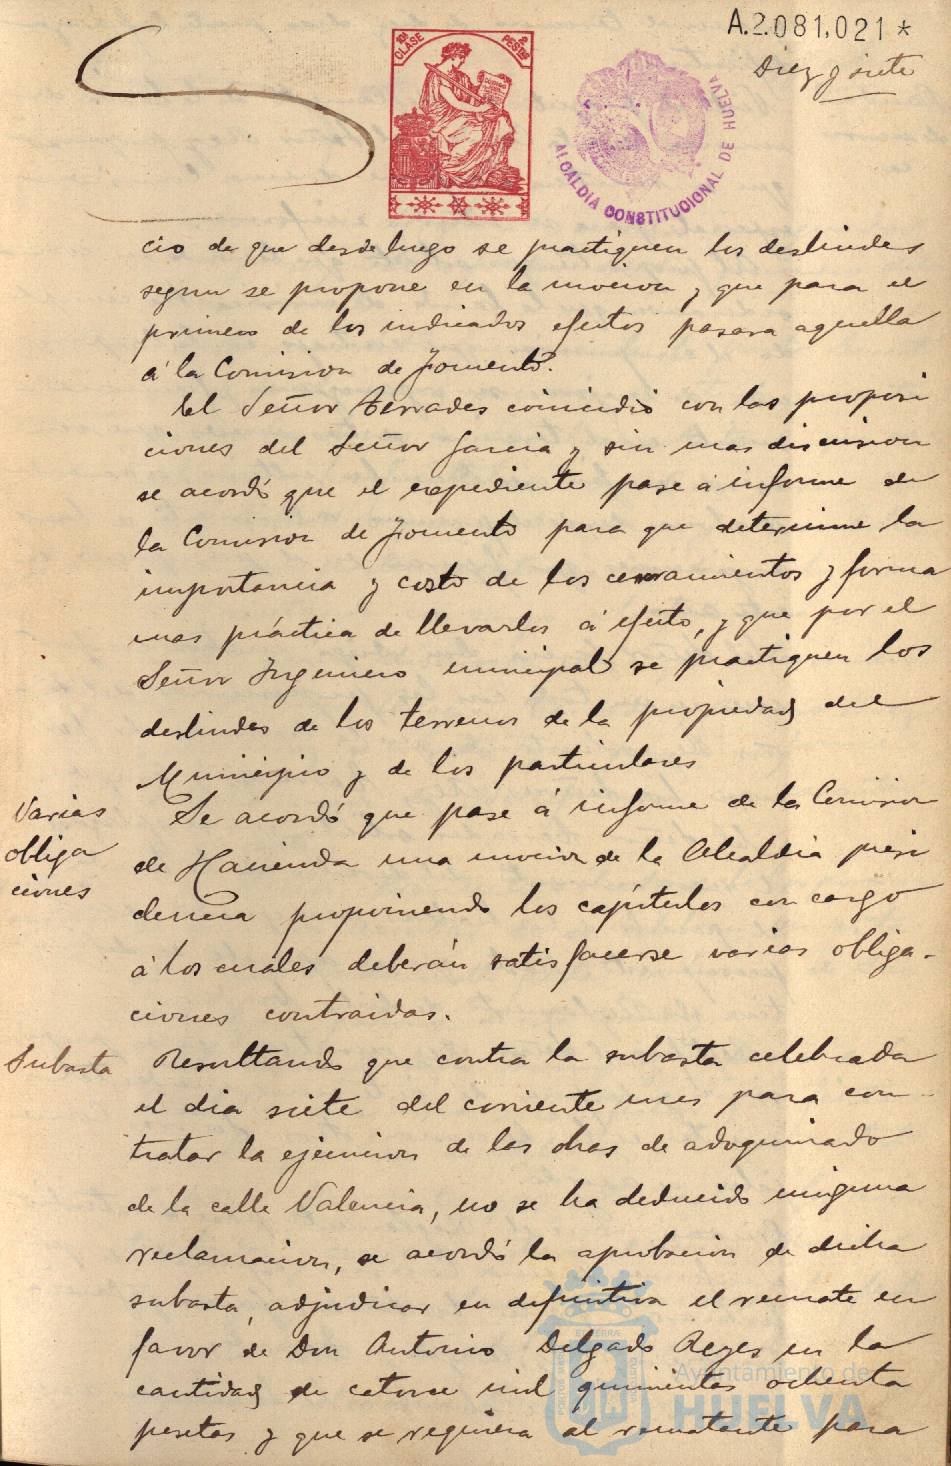 A.2.081,021*
Diez y siete
10ª CLASE
2 PESTAS
ALCALDIA CONSTITUCIONAL DE HUELVA
cio de que desde luego se practiquen los deslindes
segun se propone en la mocion y que para el
primero de los indicados efectos pasara aquella
á la Comision de Fomento.
El Señor Terrades coincidió con las proposi
ciones del Señor Garcia y sin mas discusion
se acordó que el expediente pase á informe de
la Comision de Fomento para que determine la
importancia y costo de los cerramientos y forma
mas práctica de llevarlos á efecto, y que por el
Señor Ingeniero municipal se practiquen los
deslindes de los terrenos de la propiedad del
Municipio y de los particulares
Varias
obliga
ciones
Se acordó que pase á informe de la Comision
de Hacienda una mocion de la Alcaldia presi
dencia proponiendo los capítulos con cargo
á los cuales deberán satisfacerse varias obliga-
ciones contraidas.
Subasta
Resultando que contra la subasta celebrada
el dia siete del corriente mes para con-
tratar la ejecucion de las obras de adoquinado
de la calle Valencia, no se ha deducido ninguna
reclamacion, se acordó la aprobacion de dicha
subasta, adjudicar en definitiva el remate en
favor de Don Antonio Delgado Reyes en la
cantidad de catorce mil quinientas ochenta
pesetas y que se requiera al rematante para
Ayuntamiento de
HUELVA